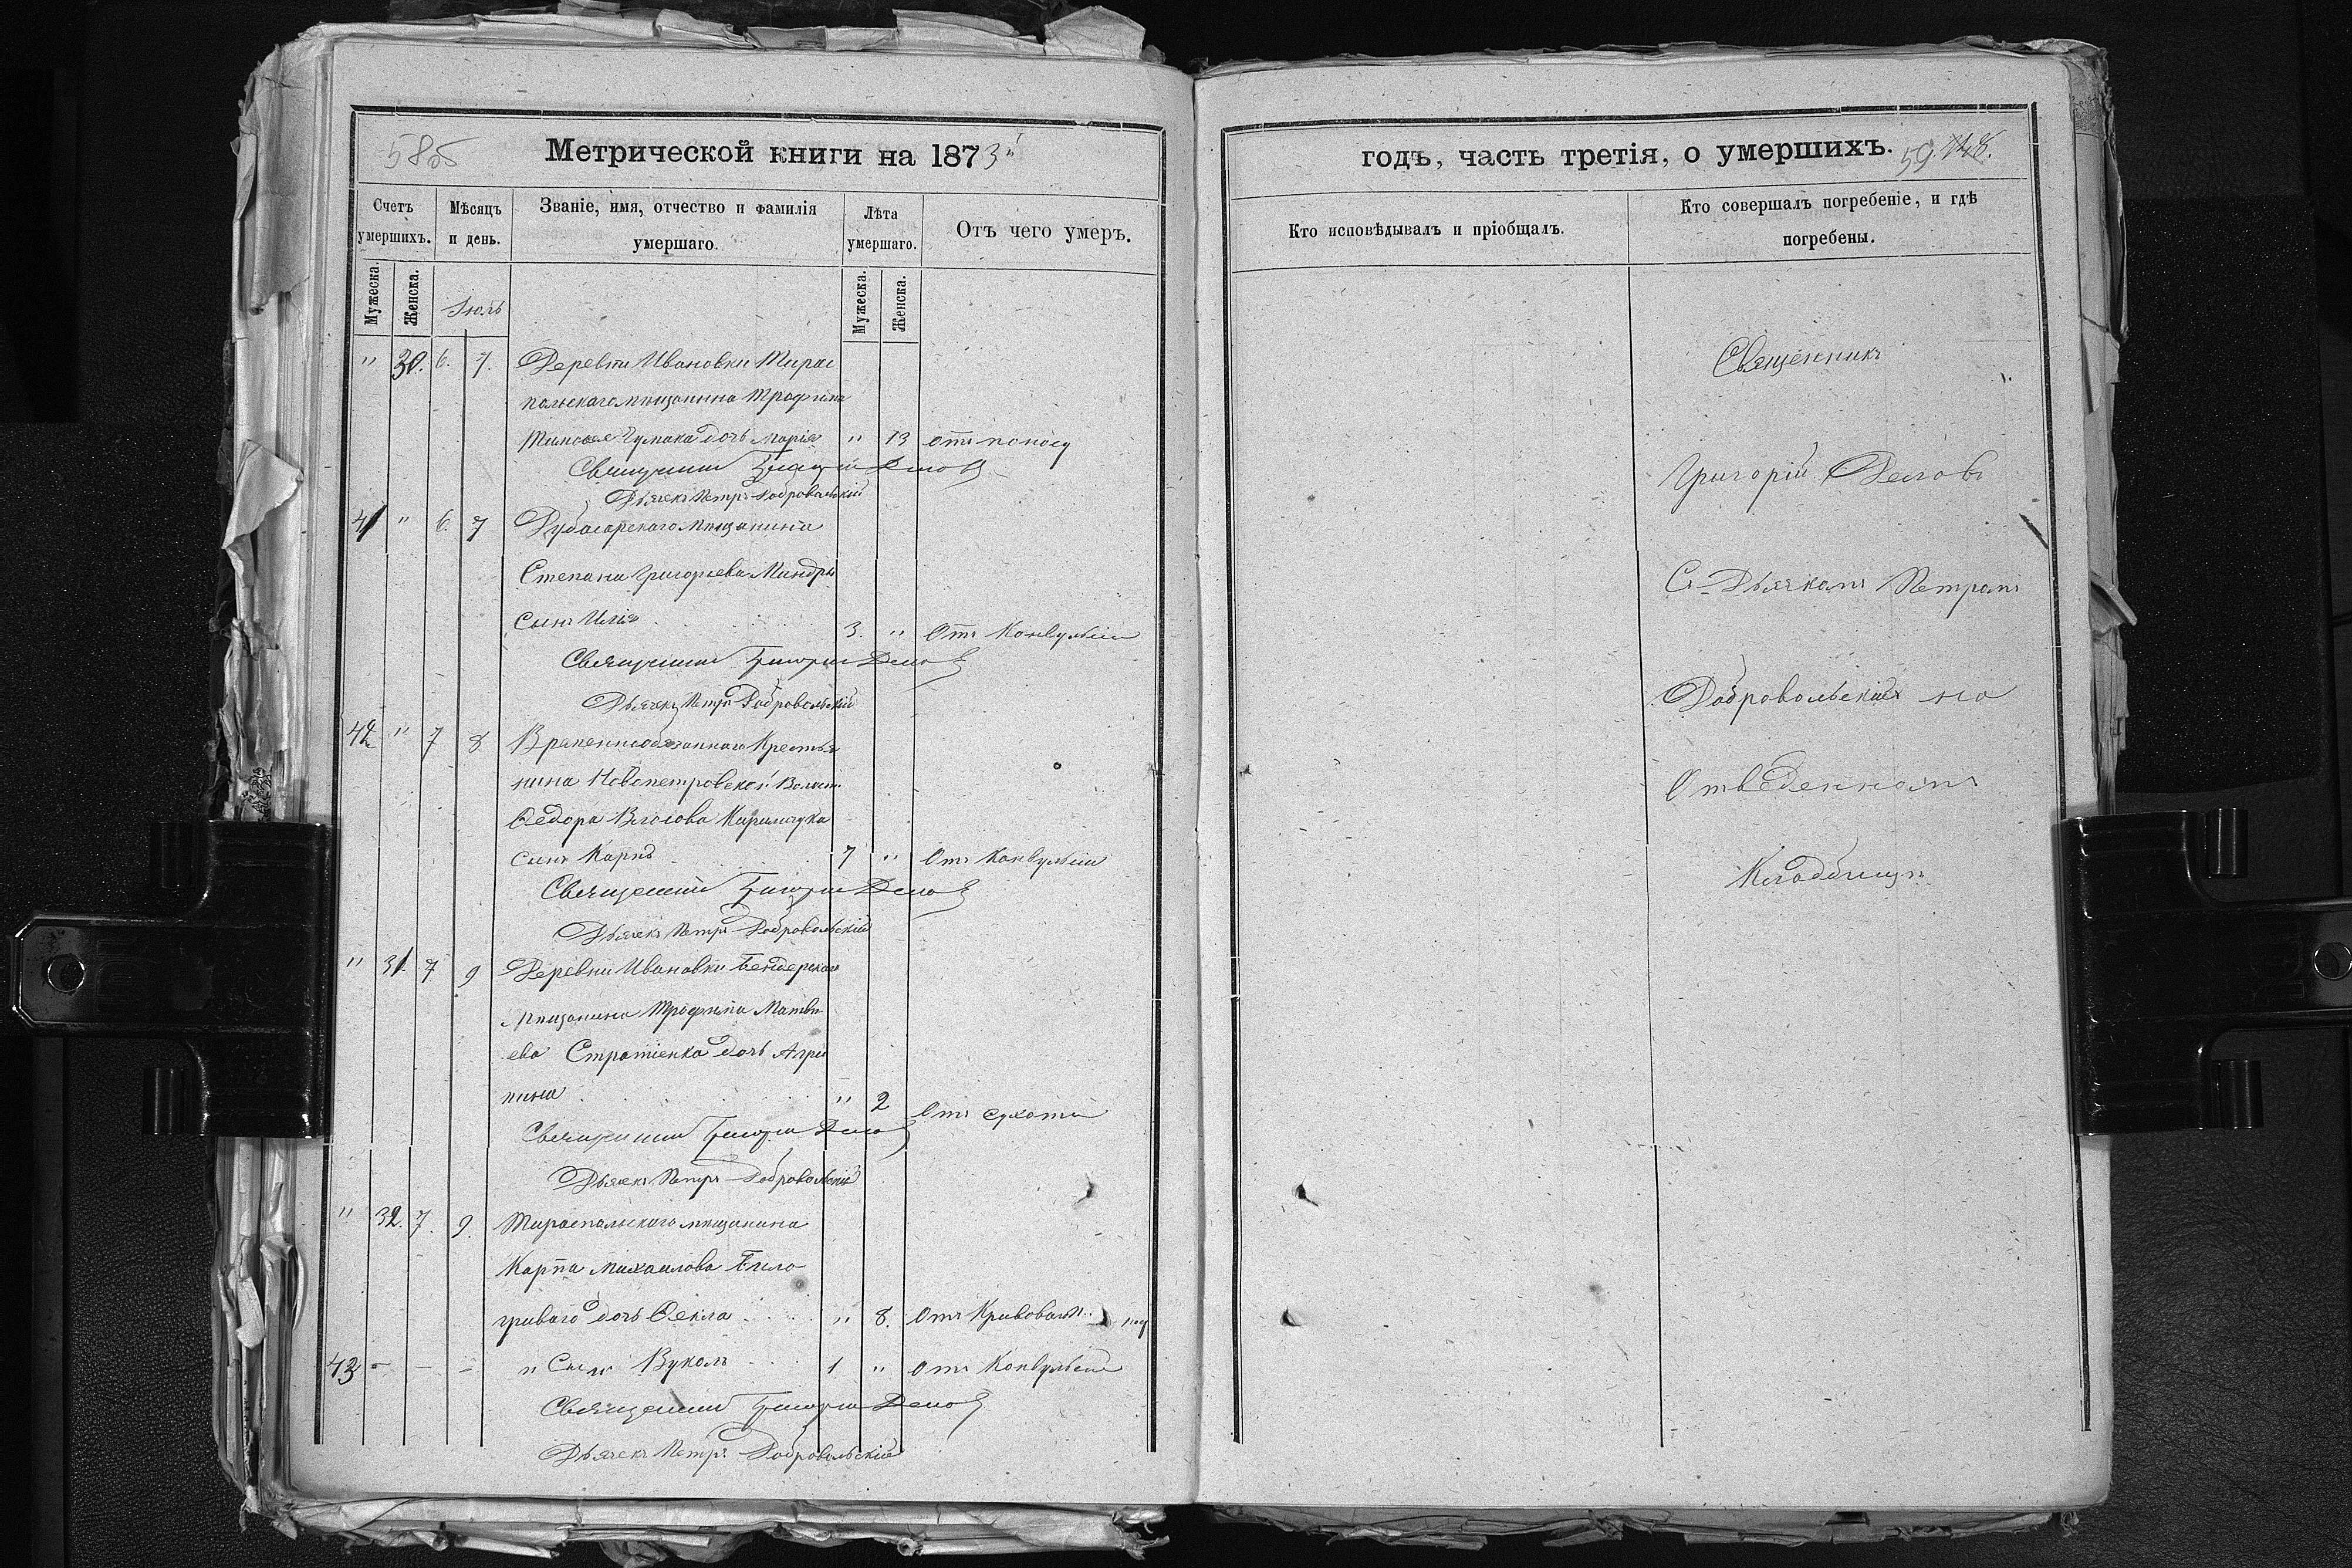 58об
Метрической книги на 1873й
Счетъ умершихъ.
Мѣсяцъ и день.
Званіе, имя, отчество и фамилія умершаго.
Лѣта умершаго.
Отъ чего умеръ.
Мужеска. Женска.
Іюль
Мужеска. Женска.
" 30. 6. 7. Деревни Ивановки Тирас
польскаго мещанина Трофима
Чумака дочь Марія " 13 отъ поносу
Священникъ Григорій Деловъ
Дьячекъ Петръ Добровольскій
41 " 6. 7 Дубосарскаго мещанина
Степана Григорьева Мандры
Сынъ Илія 3. " Отъ Конвульсіи
Священникъ Григорій Деловъ
Дьячекъ Петръ Добровольскій
42 " 7 8 Временнообязаннаго Крестья
нина Новопетровской Волости
Ѳедора Власова Кирилчука
сынъ Карпъ 7 " Отъ Конвульсіи
Священникъ Григорій Деловъ
Дьячекъ Петръ Добровольскій
" 31. 7 9 Деревни Ивановки Бендерскаго
мещанина Трофима Матвѣ
ева Стратіенка дочь Агри
пина " 2 Отъ сухоты
Священникъ Григорій Деловъ
Дьячекъ Петръ Добровольскій
" 32. 7. 9. Тираспольскаго мещанина
Карпа Михаилова Бѣло
гриваго дочь Ѳекла " 8. Отъ
43 - - - и Сынъ Вуколъ 1 " Отъ Конвульсіи
Священникъ Григорій Деловъ
Дьячекъ Петръ Добровольскій
годъ, часть третія, о умершихъ.
59. 148.
Кто исповѣдывалъ и пріобщалъ.
Кто совершалъ погребеніе, и гдѣ погребены.
Священникъ
Григорій Деловъ
Съ Дьячкомъ Петромъ
Добровольскимъ на
Отведенномъ
Кладбищѣ